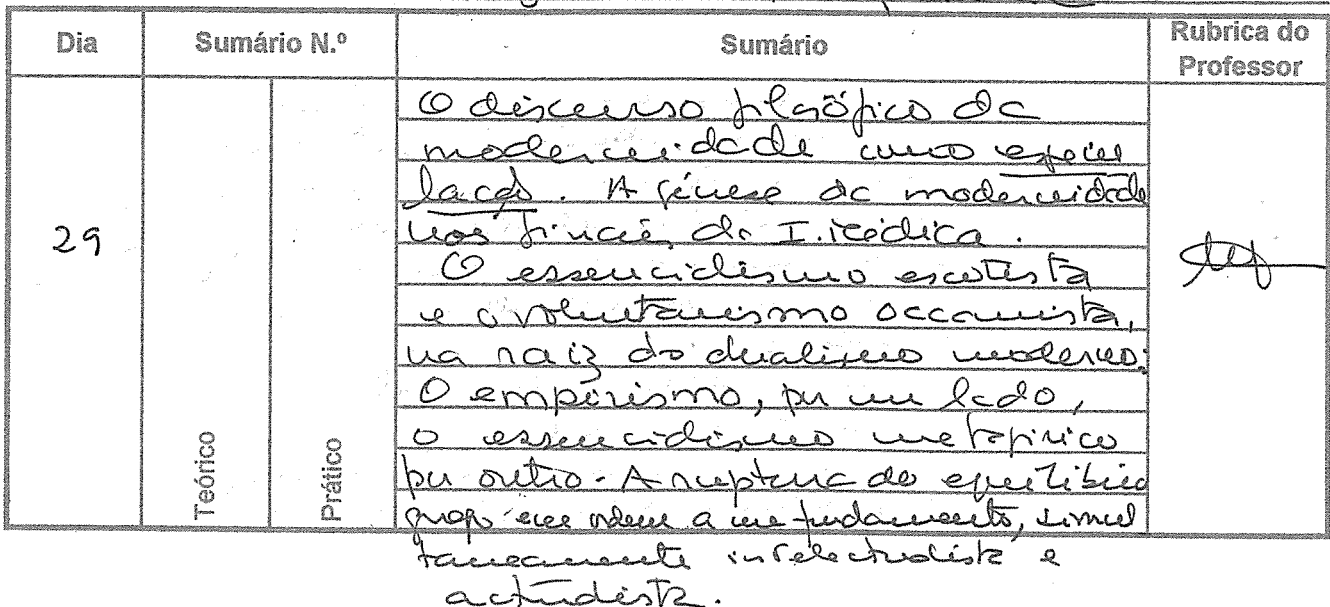 Dia Sumário N.º Sumário Rubrica do Professor
O discurso filosófico da
modernidade como especu
lação. A génese da modernidade
nos finais da I. média.
O essencialismo escotista
e o voluntarismo occamista,
na raiz do dualismo moderno.
O empirismo, por um lado,
o essencialismo metafísico
por outro. A ruptura do equilíbrio
em ordem a um fundamento, simul
taneamente intelectualista e
actualista.
29
Teórico
Prático